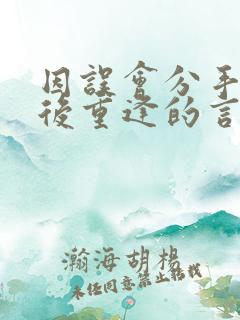 因誤會分手
後重逢的言
瀚海胡楊
未經同意禁止轉載